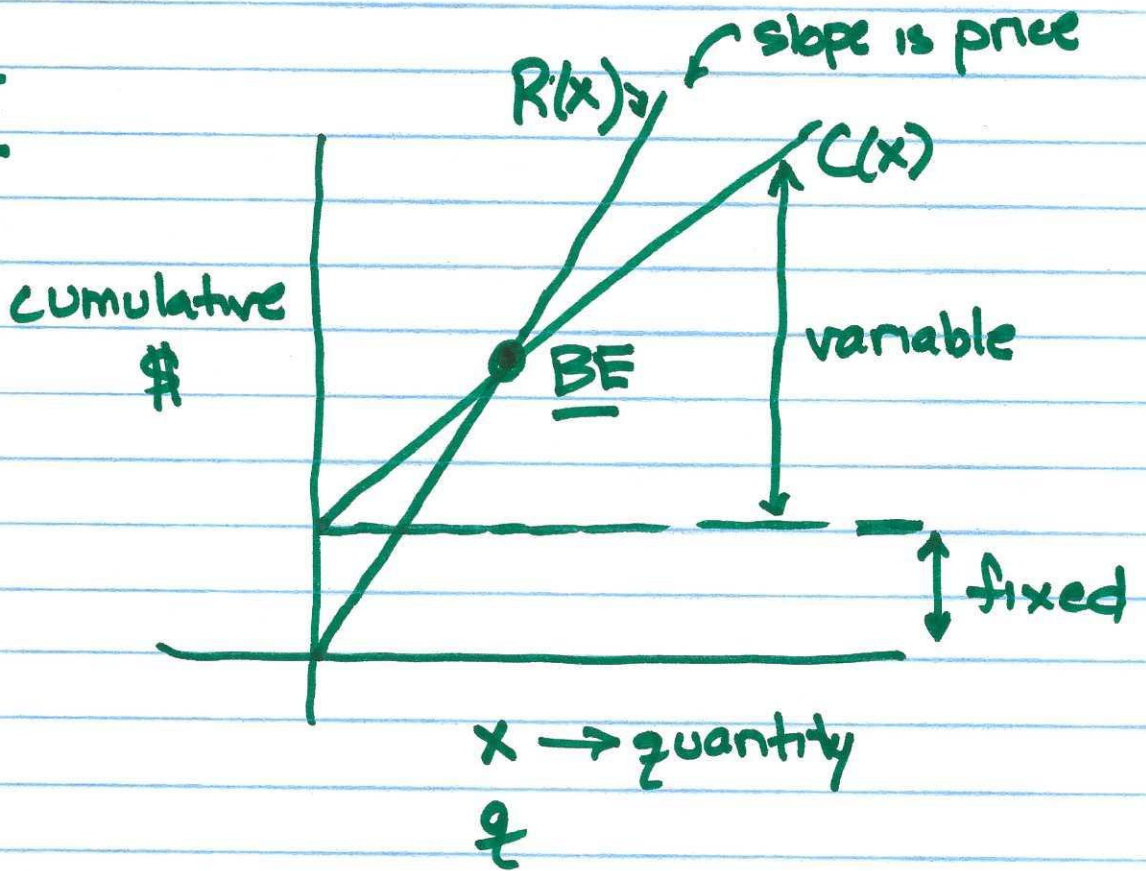 slope is price
R(x)
C(x)
cumulative
$
variable
BE
fixed
x → quantity
q